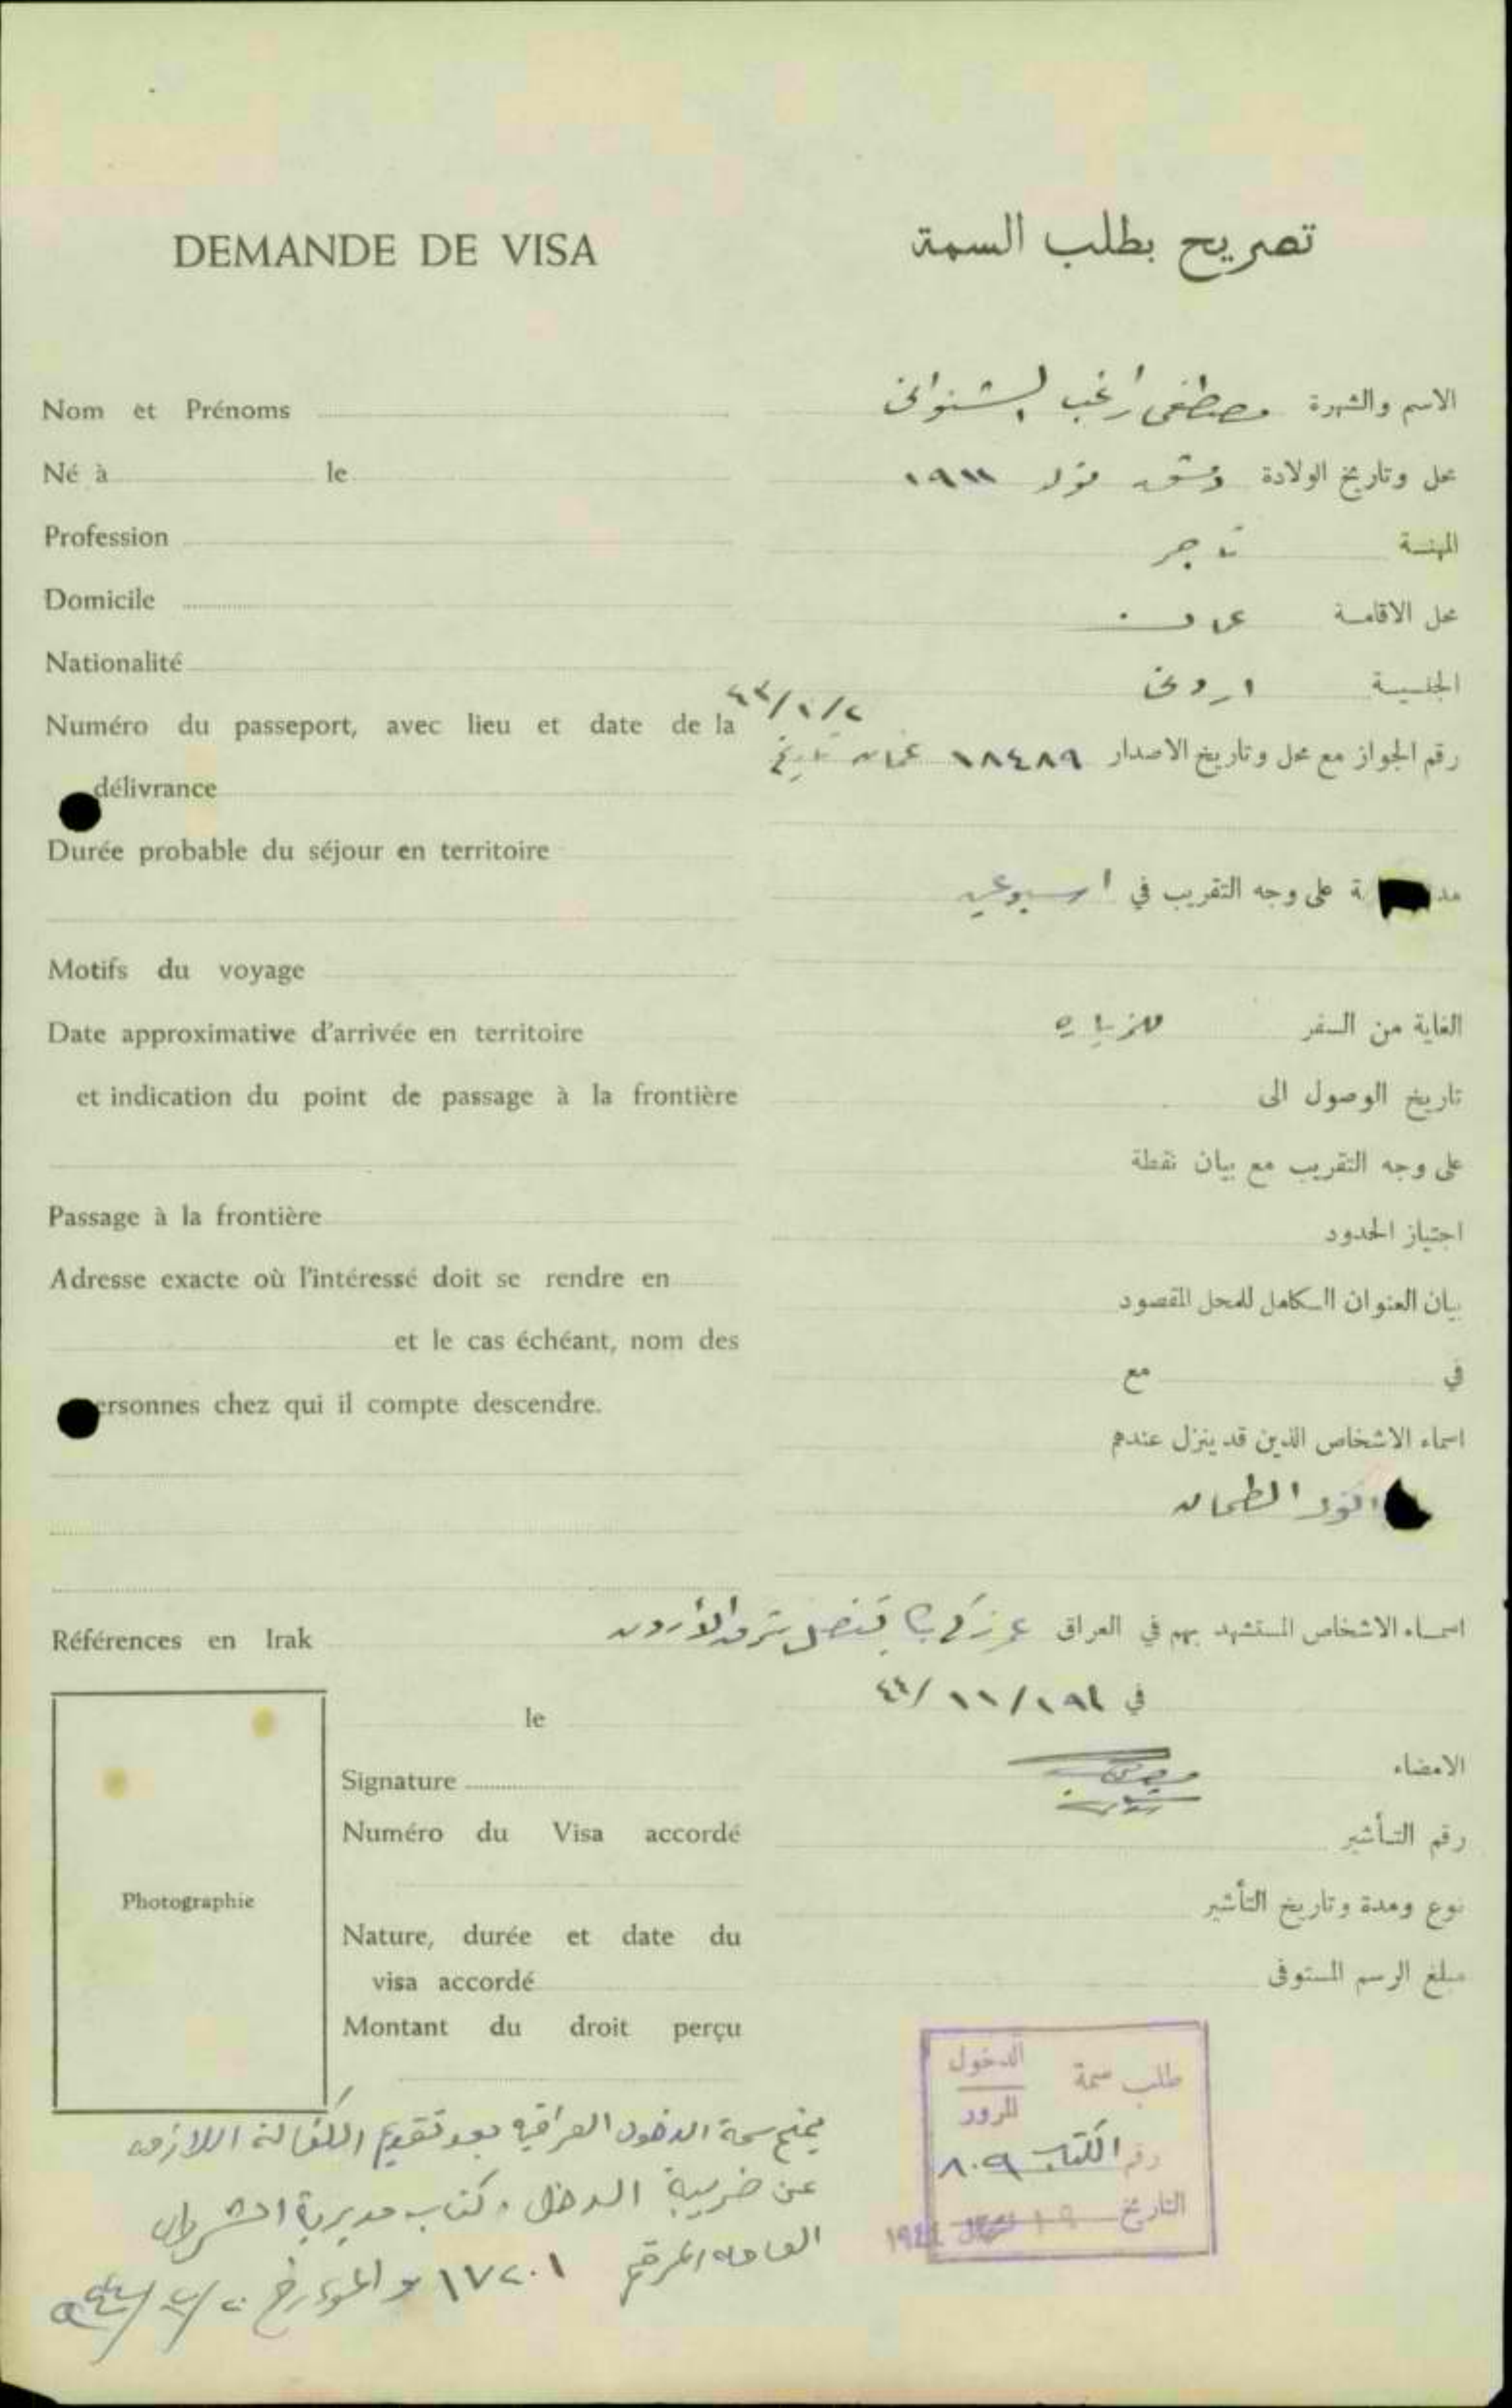 DEMANDE DE VISA
تصريح بطلب السمة
Nom et Prénoms
Né à le
Profession
Domicile
Nationalité
Numéro du passeport, avec lieu et date de la
délivrance
Durée probable du séjour en territoire
Motifs du voyage
Date approximative d'arrivée en territoire
et indication du point de passage à la frontière
Passage à la frontière
Adresse exacte où l'intéressé doit se rendre en
et le cas échéant, nom des
ersonnes chez qui il compte descendre.
Références en Irak
le
Signature
Numéro du Visa accordé
Photographie
Nature, durée et date du
visa accordé
Montant du droit perçu
الاسم والشهرة مصطفى راغب
محل وتاريخ الولادة دمشق تولد ١٩١١
المهنة تاجر
محل الاقامة عمان
الجنسية اردني
رقم الجواز مع محل وتاريخ الاصدار ١٨٤٨٩ عمان تاريخ
على وجه التقريب في اسبوعين
الغاية من السفر للزياره
تاريخ الوصول الى
على وجه التقريب مع بيان نقطة
اجتياز الحدود
بيان العنوان الكامل للمحل المقصود
في مع
اسماء الاشخاص الذين قد ينزل عندهم
اسماء الاشخاص المستشهد بهم في العراق قنصل شرق الأردن
في
الامضاء
رقم التأشير
نوع ومدة وتاريخ التأشير
مبلغ الرسم المستوفى
طلب سمة الدخول
المرور
رقم الكتاب ٨٠٩
التاريخ ١٩
يمنح سمة الدخول العراقيه بعد تقديم الكفالة اللازمه
عن ضريبة الدخل وكتاب مديرية
العامه المرقم ١٧٢٠١ والمؤرخ